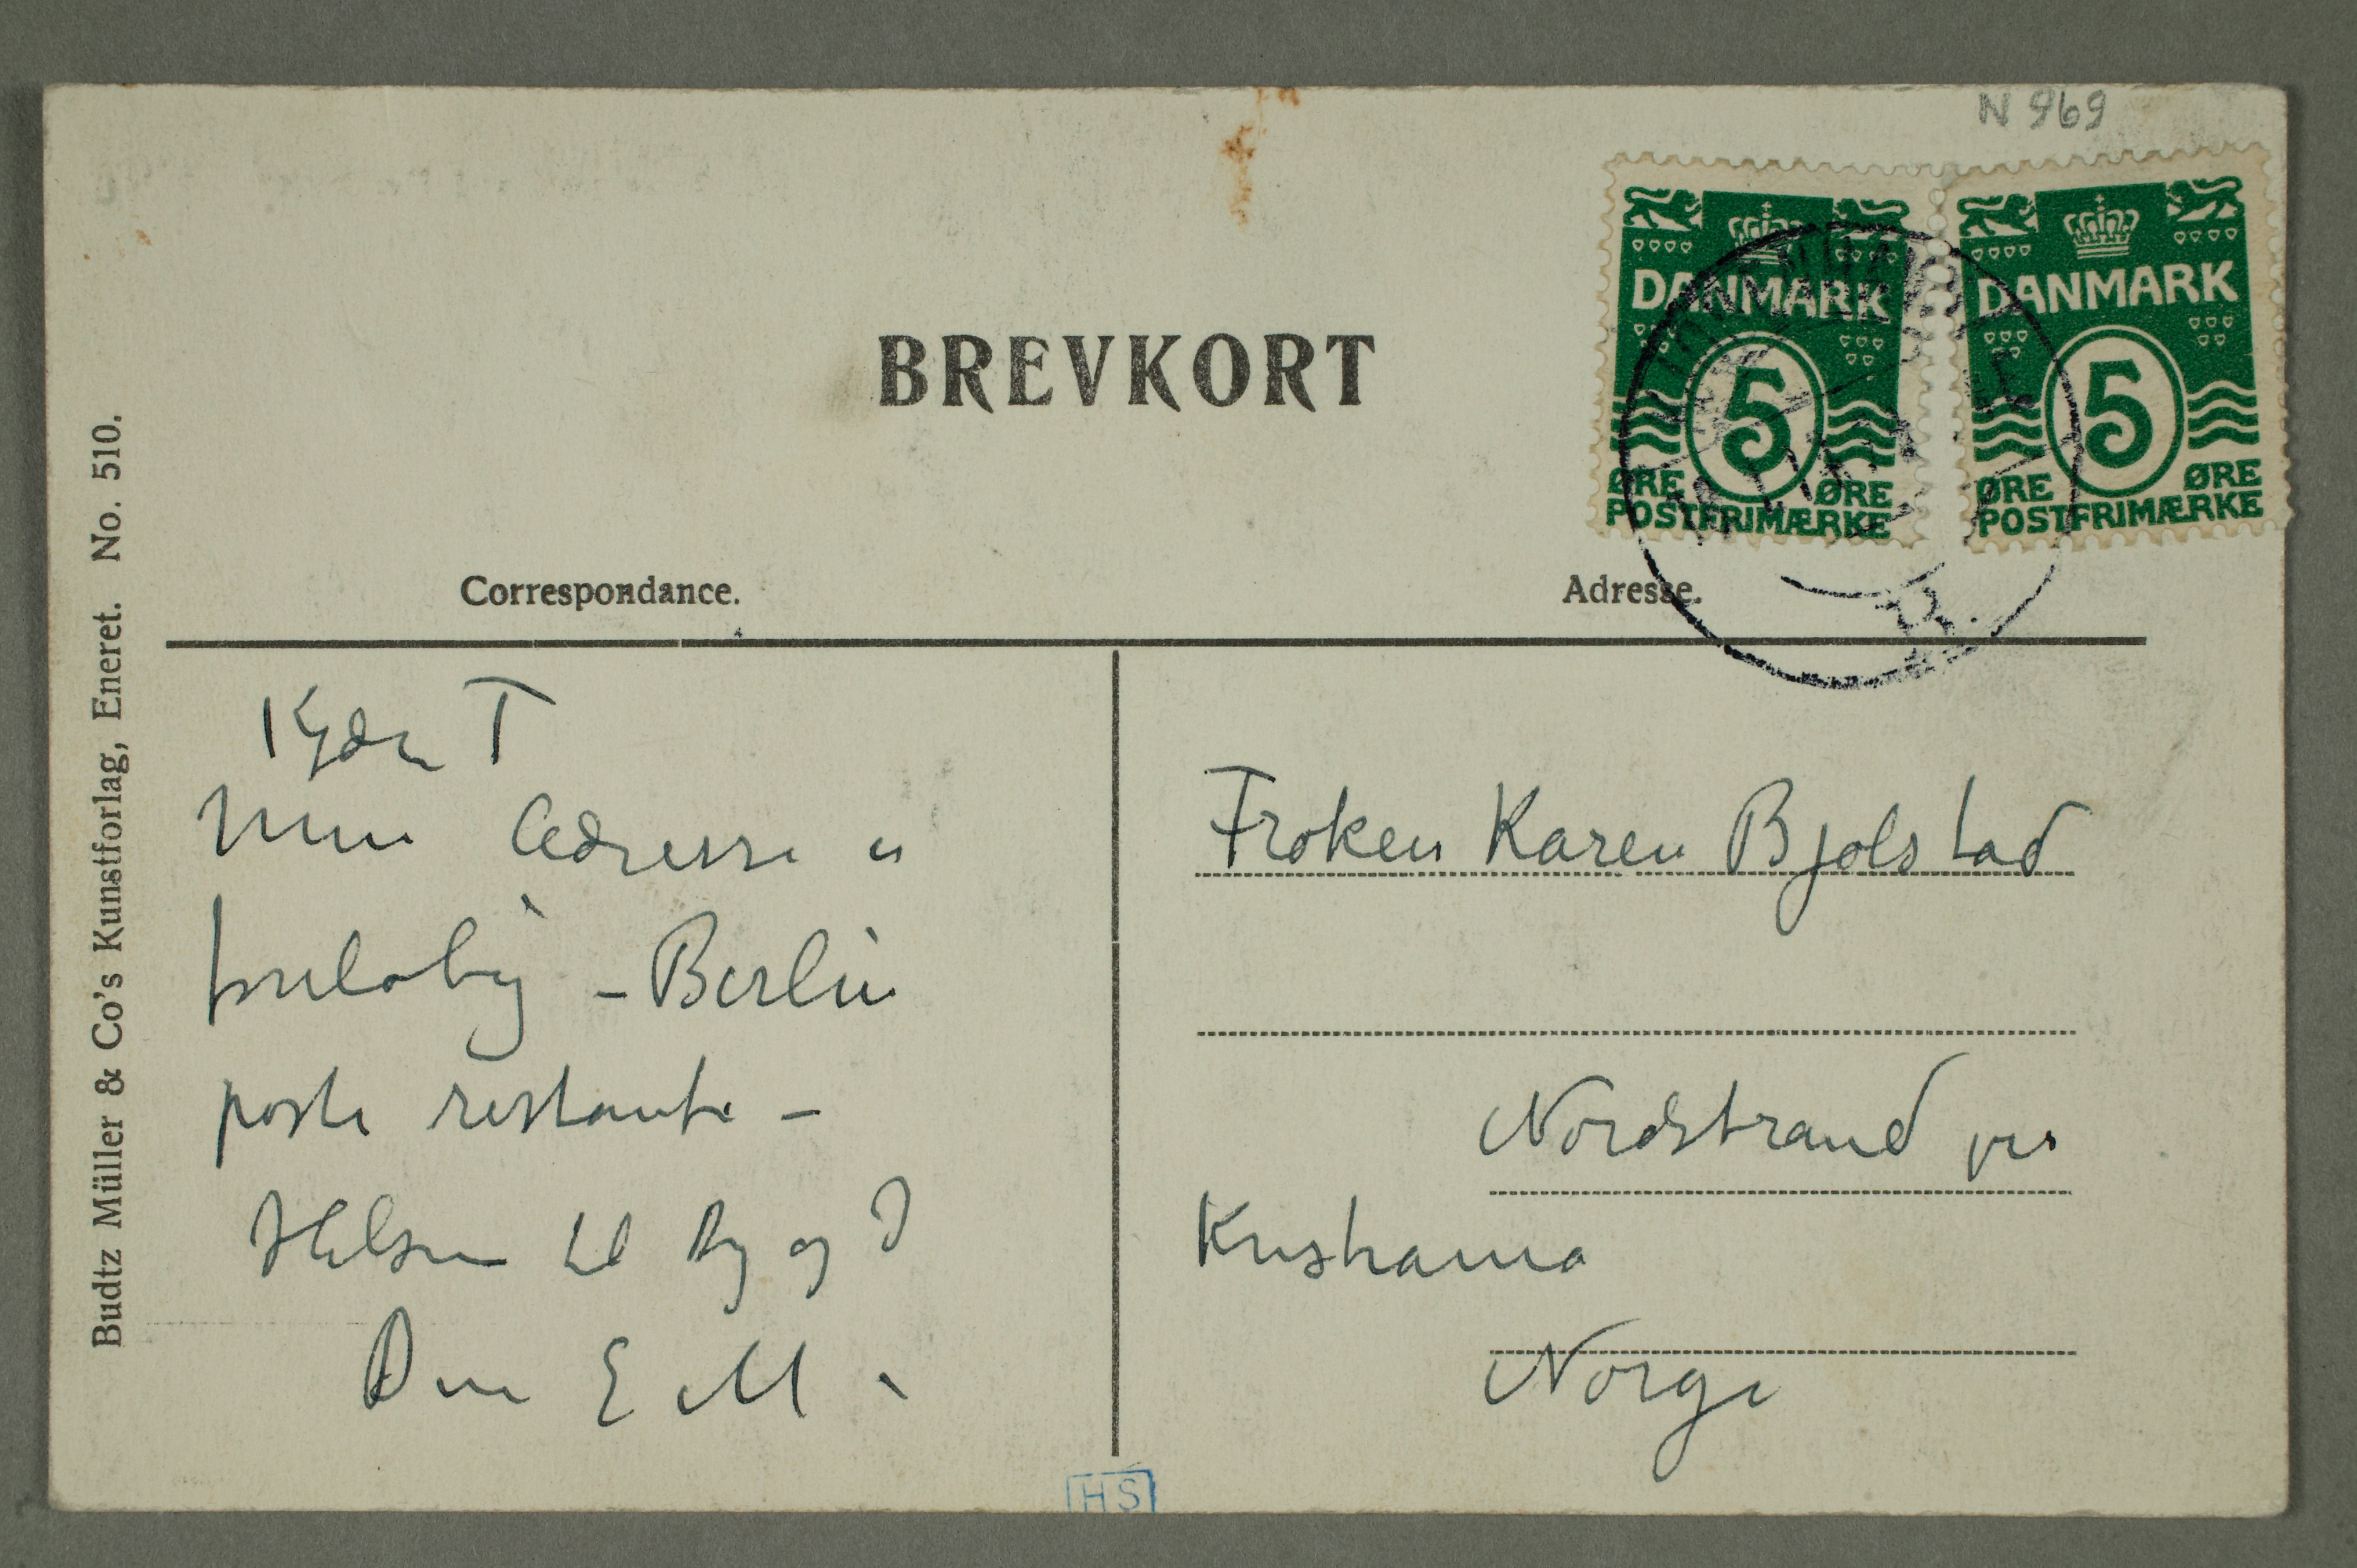 N 969
BREVKORT
DANMARK
5
ØRE ØRE
POSTFRIMÆRKE
DANMARK
5
ØRE ØRE
POSTFRIMÆRKE
Correspondance.
Adresse.
Budtz Müller & Co's Kunstforlag, Eneret. No. 510.
Kjære T
Min Adresse er
foreløbig – Berlin
poste restante –
Hilsen til Dig og I
Din E M
Frøken Karen Bjølstad
Nordstrand pr
Kristiania
Norge
HS